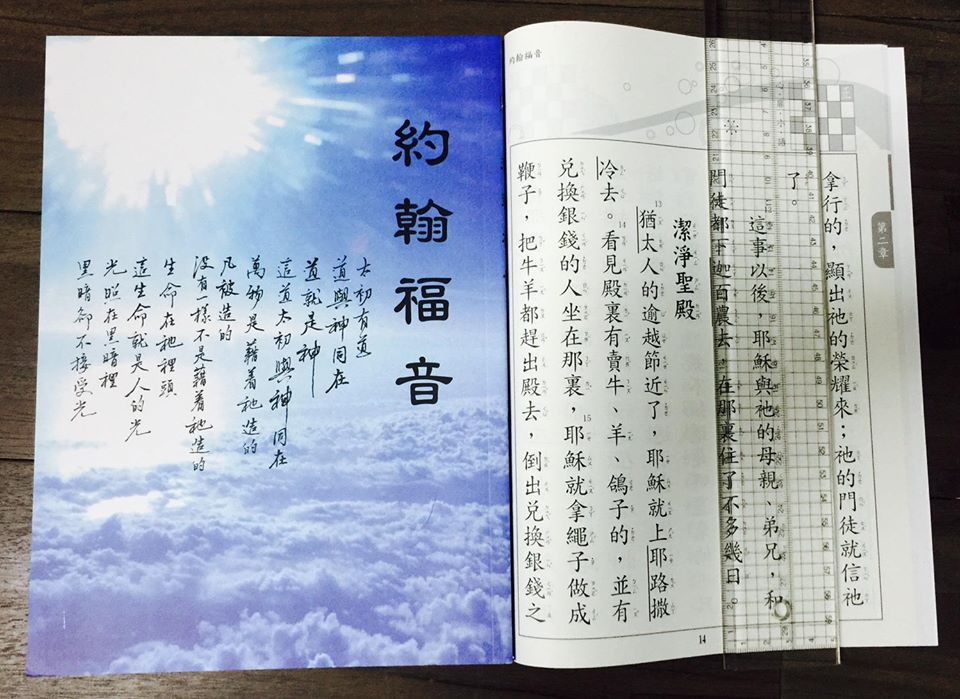 約翰福音
太初有道
道與神同在
道就是神
這道太初與神同在
萬物是藉着祂造的
凡被造的
沒有一樣不是藉着祂造的
生命在祂裡頭
這生命就是人的光
光照在黑暗裡
黑暗卻不接受光
約翰福音
第二章
拿行的，顯出祂的榮耀來；祂的門徒就信祂
了。
這事以後，耶穌與祂的母親、弟兄，和
門徒都下迦百農去，在那裏住了不多幾日。
潔淨聖殿
13猶太人的逾越節近了，耶穌就上耶路撒
冷去。14看見殿裏有賣牛、羊、鴿子的，並有
兌換銀錢的人坐在那裏，15耶穌就拿繩子做成
鞭子，把牛羊都趕出殿去，倒出兌換銀錢之
14